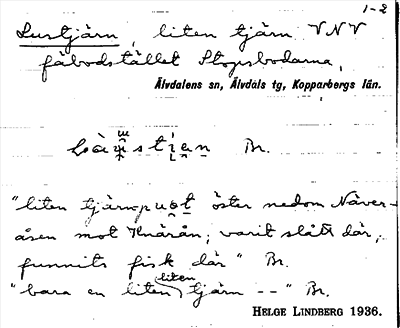 1-2
Lustjärn, liten tjärn VNV
fäbodstället Stopsbodarna,
Älvdalens sn, Älvdals tg, Kopparbergs län.
Br.
"liten tjärnpuọt öster nedom Näver-
åsen mot Knärån; varit slått där,
funnits fisk där" Br.
"bara en liten liten tjärn --" Br.
HELGE LINDBERG 1936.